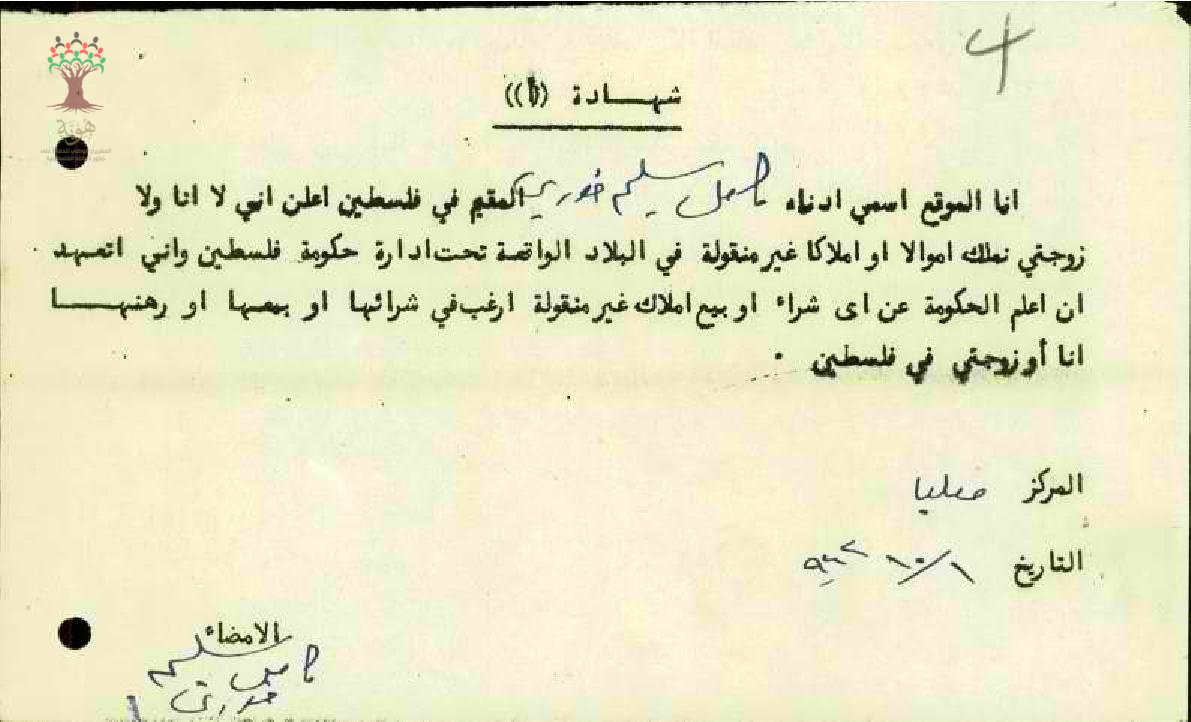 4
هوية
شهـــادة ((١))
انا الموقع اسمي ادناه كامل سليم خوري المقيم في فلسطين اعلن اني لا انا ولا
زوجتي نملك اموالا او املاكا غير منقولة في البلاد الواقعة تحت ادارة حكومة فلسطين واني اتعهد
ان اعلم الحكومة عن اى شراء او بيع املاك غير منقولة ارغب في شرائها او بيعها او رهنهـــا
انا أو زوجتي في فلسطين .
المركز معليا
التاريخ
الامضاء
كامل سليم
خوري